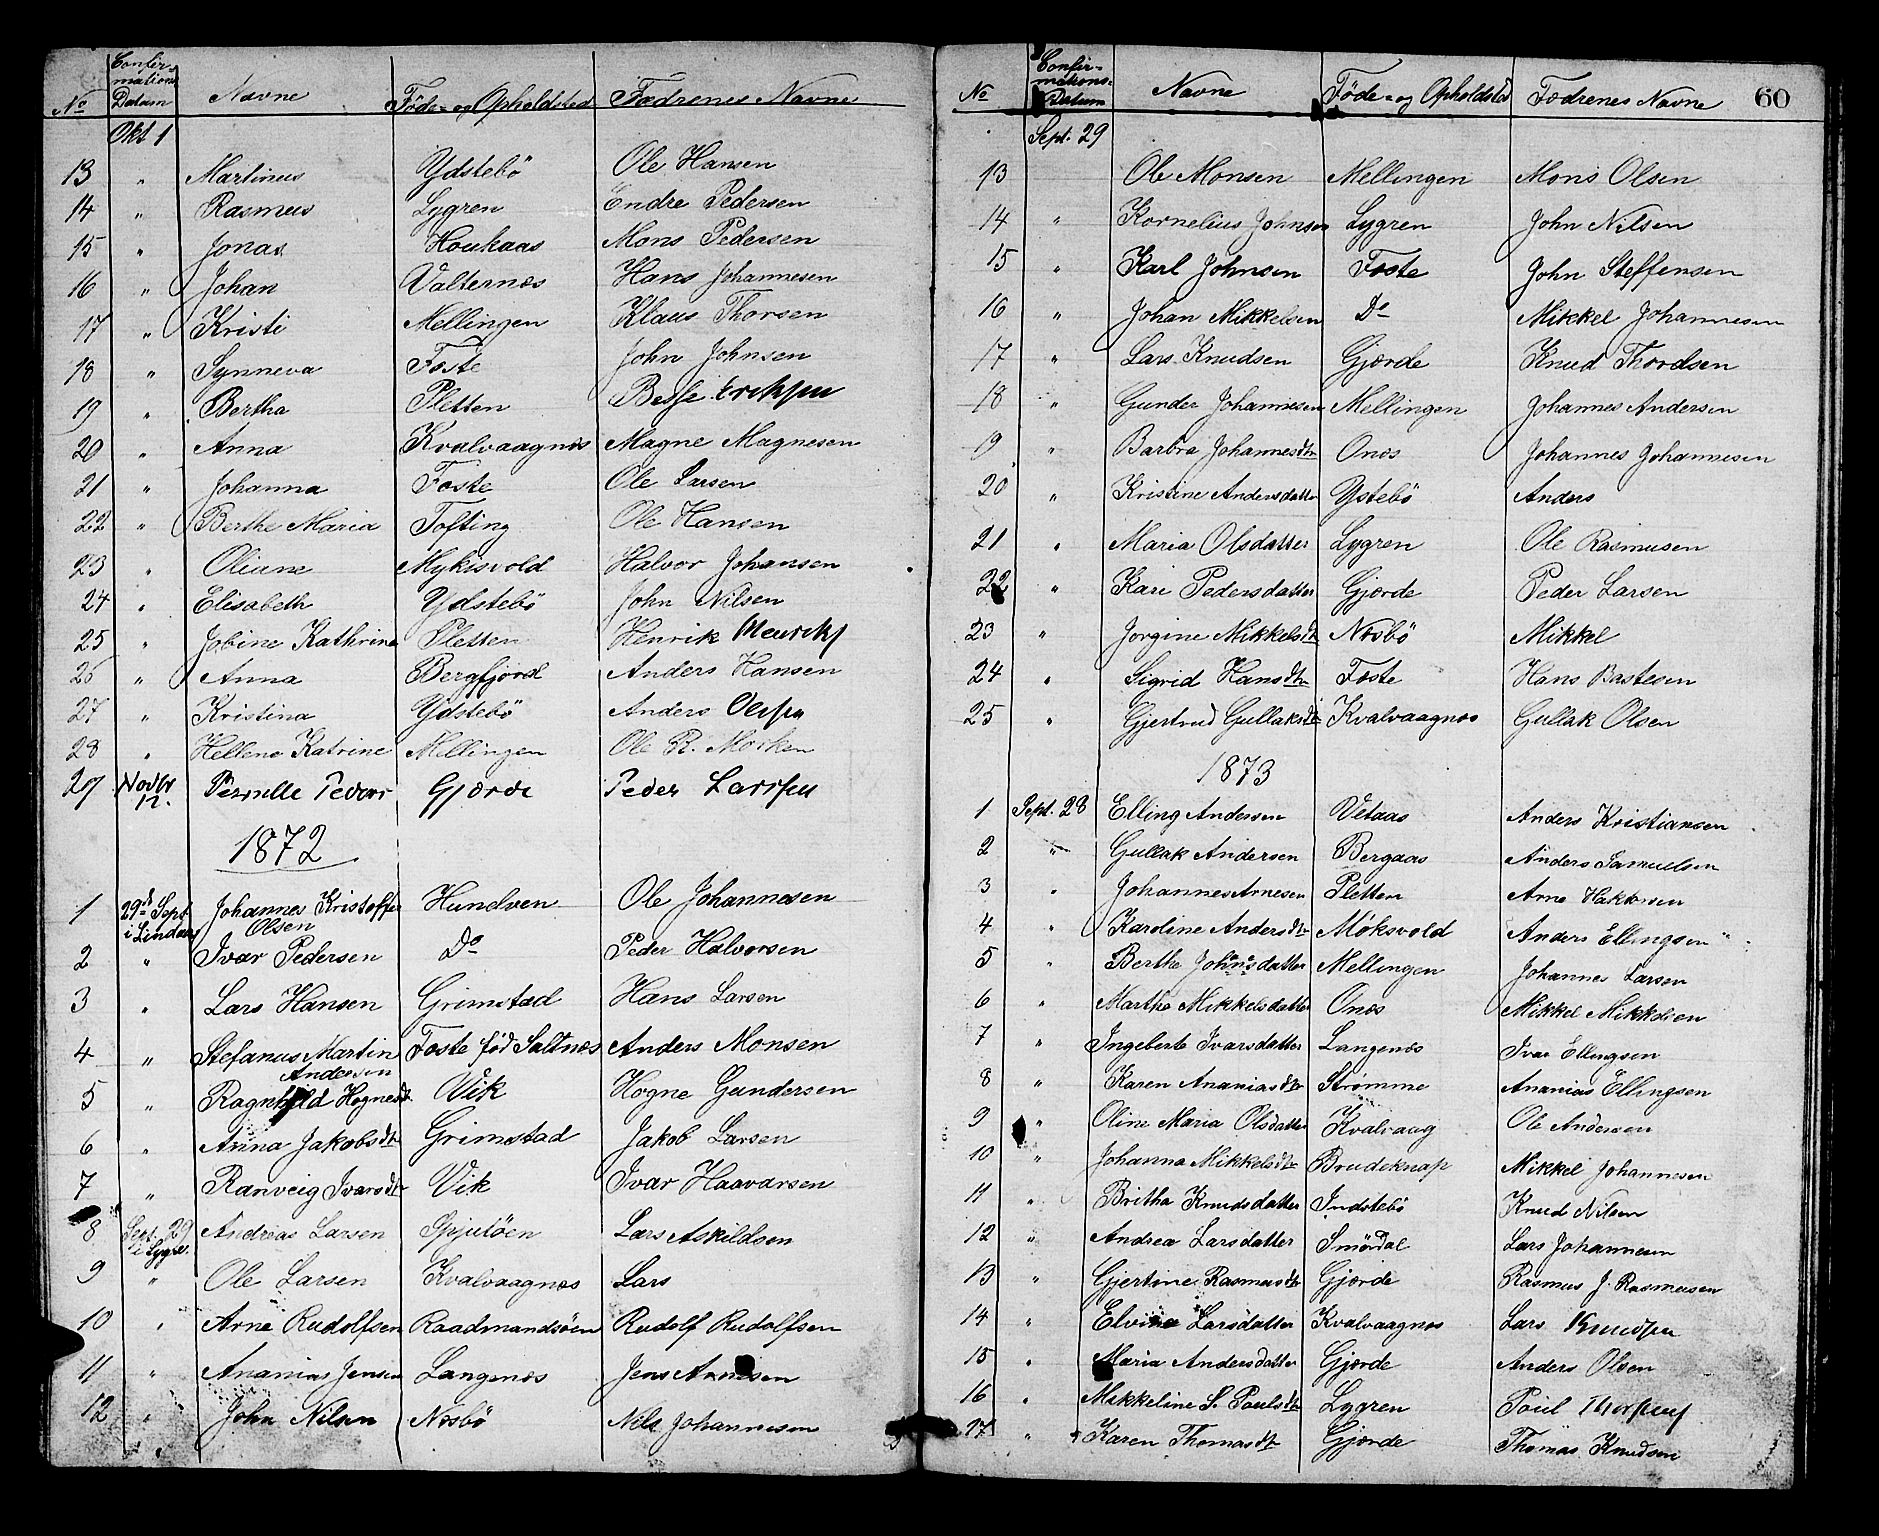 No Confirmations Datum Navne Føde- og Opholdsted Fædrenes Navne
Okt 1
13 " Martinus Ydstebö Ole Hansen
14 " Rasmus Lygren Endre Pedersen
15 " Jonas Houkaas Mons Pedersen
16 " Johan Valternæs Hans Johannesen
17 " Kristi Mellingen Klaus Thorsen
18 " Synneva Foste John Johnsen
19 " Bertha Pletten
20 " Anna Kvalvaagnæs Magne Magnesen
21 " Johanna Foste Ole Larsen
22 " Berthe Maria Tofting Ole Hansen
23 " Oliane Mykisvold Halvor Johansen
24 " Elisabeth Ydstebö John Nilsen
25 " Jobine Kathrine Pletten Henrik
26 " Anna Bergfjord Anders Hansen
27 " Kristina Ydstebö Anders
28 " Hellene Katrine Mellingen Ole R. Morken
29 Novbr 12. Pernille Gjærde Peder Larssen
1872
1 29de Sept i Lindaas Johannes Kristoffer Hundven Ole Johannesen
Olsen
2 " Ivar Pedersen Do Peder Halvorsen
3 " Lars Hansen Grimstad Hans Larsen
4 " Stefanus Martin Foste föd Saltnæs Anders Monsen
Andersen
5 " Ragnhild Hognedt Vik Hogne Gundersen
6 " Anna Jakobsdtr Grimstad Jakob Larsen
7 " Ranveig Ivarsdtr Vik Ivar Haavarsen
8 Sept. 29 i Lygre. Andreas Larsen Spjutöen Lars Askildsen
9 " Ole Larsen Kvalvaagnæs Lars
10 " Arne Rudolfsen Raadmandsöen Rudolf Rudolfsen
11 " Ananias Jensen Langenæs Jens Arnesen
12 " John Nilsen Næsbö Nils Johannesen
60
No Confirmations-Datum Navne Föde- og Opholdsted Fædrenes Navne
Sept. 29
13 Ole Monsen Mellingen Mons Olsen
14 " Kornelius Johnsen Lygren John Nilsen
15 " Karl Johnsen Foste John Steffensen
16 " Johan Mikkelsen Do Mikkel Johannesen
17 " Lars Knudsen Gjærde Knud Thordsen
18 " Gunder Johannesen Mellingen Johannes Andersen
19 " Barbra Johannesdtr Onæs Johannes Johannesen
20 " Kristine Andersdatter Ystebö Anders
21 " Maria Olsdatter Lygren Ole Rasmusen
22 " Kari Pedersdatter Gjærde Peder Larsen
23 " Jorgine Mikkelsdt Næsbö Mikkel
24 " Sigrid Hansdtr Foste Hans Bastesen
25 " Gjertrud Gullaksdt Kvalvaagnæs Gullak Olsen
1873
1 Sept. 28 Elling Andersen Vetaas Anders Kristiansen
2 " Gullak Andersen Bergaas Anders Samuelsen
3 " Johannes Arnesen Pletten Arne Haktorsen
4 " Karoline Andersdtr Möksvold Anders Ellingsen
5 " Berthe Johnsdatter Mellingen Johannes Larsen
6 " Martha Mikkelsdatter Onæs Mikkel Mikkelsen
7 " Ingeberte Ivarsdatter Langenæs Ivar Ellingsen
8 " Karen Ananiasdtr Strømme Ananias Ellingsen
9 " Oline Maria Olsdatter Kvalvaag Ole Andersen
10 " Johanna Mikkelsdtr Brudeknap Mikkel Johannesen
11 " Britha Knudsdatter Indstebö Knud Nilsen
12 " Andrea Larsdatter Smördal Lars Johannesen
13 " Gjertine Rasmusdtr Gjærde Rasmus J. Rasmusen
14 " Elvine Larsdatter Kvalvaagnæs Lars Knudsen
15 " Maria Andersdatter Gjærde Anders Olsen
16 " Mikkeline S. Poulsdtr Lygren Poul
17 " Karen Thomasdtr Gjærde Thomas Knudsen